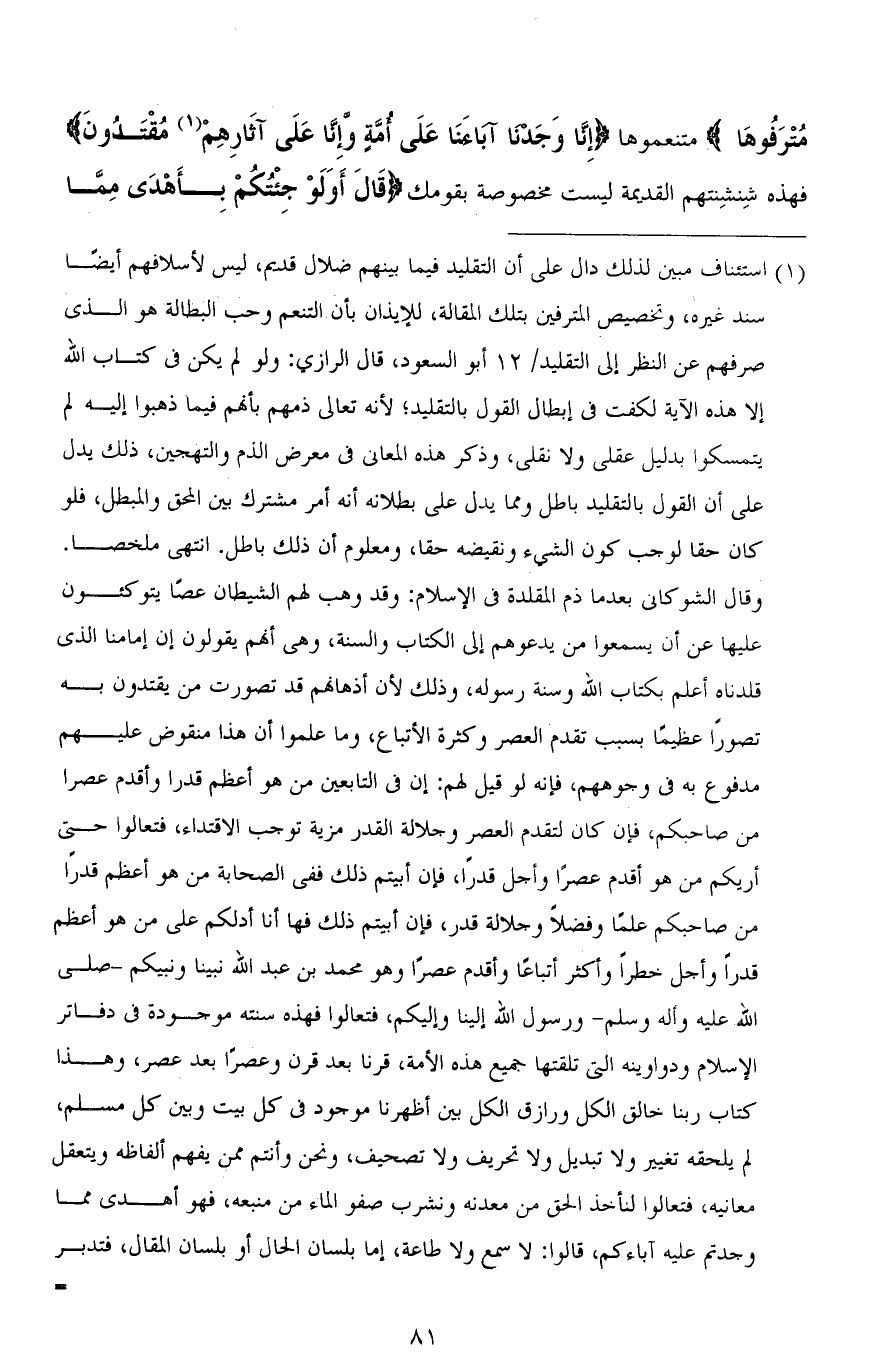 مُتْرَفُوهَا ﴾ متنعموها ﴿إِنَّا وَجَدْنَا آبَاءَنَا عَلَى أُمَّةٍ وَّإِنَّا عَلَى آثَارِهِمْ(١) مُقْتَدُونَ﴾
فهذه شِنشِنتهم القديمة ليست مخصوصة بقومك ﴿قَالَ أَوَلَوْ جِئْتُكُمْ بِأَهْدَى مِمَّا
(١) استئناف مبين لذلك دال على أن التقليد فيما بينهم ضلال قديم، ليس لأسلافهم أيضًا
سند غيره، وتخصيص المترفين بتلك المقالة، للإيذان بأن التنعم وحب البطالة هو الذى
صرفهم عن النظر إلى التقليد/ ١٢ أبو السعود، قال الرازي: ولو لم يكن فى كتاب الله
إلا هذه الآية لكفت فى إبطال القول بالتقليد؛ لأنه تعالى ذمهم بأنهم فيما ذهبوا إليه لم
يتمسكوا بدليل عقلى ولا نقلى، وذكر هذه المعانى فى معرض الذم والتهجين، ذلك يدل
على أن القول بالتقليد باطل ومما يدل على بطلانه أنه أمر مشترك بين المحق والمبطل، فلو
كان حقا لوجب كون الشيء ونقيضه حقا، ومعلوم أن ذلك باطل. انتهى ملخصا.
وقال الشوكانى بعدما ذم المقلدة فى الإسلام: وقد وهب لهم الشيطان عصًا يتوكئون
عليها عن أن يسمعوا من يدعوهم إلى الكتاب والسنة، وهى أنهم يقولون إن إمامنا الذى
قلدناه أعلم بكتاب الله وسنة رسوله، وذلك لأن أذهانهم قد تصورت من يقتدون به
تصورًا عظيمًا بسبب تقدم العصر وكثرة الأتباع، وما علموا أن هذا منقوض عليهم
مدفوع به فى وجوههم، فإنه لو قيل لهم: إن فى التابعين من هو أعظم قدرا وأقدم عصرا
من صاحبكم، فإن كان لتقدم العصر وجلالة القدر مزية توجب الاقتداء، فتعالوا حتى
أريكم من هو أقدم عصرًا وأجل قدرًا، فإن أبيتم ذلك ففى الصحابة من هو أعظم قدرًا
من صاحبكم علمًا وفضلاً وجلالة قدر، فإن أبيتم ذلك فها أنا أدلكم على من هو أعظم
قدراً وأجل خطراً وأكثر أتباعًا وأقدم عصرًا وهو محمد بن عبد الله نبينا ونبيكم -صلى
الله عليه وأله وسلم- ورسول الله إلينا وإليكم، فتعالوا فهذه سنته موجودة فى دفاتر
الإسلام ودواوينه التى تلقتها جميع هذه الأمة، قرنا بعد قرن وعصرًا بعد عصر، وهذا
كتاب ربنا خالق الكل ورازق الكل بين أظهرنا موجود فى كل بيت وبين كل مسلم،
لم يلحقه تغيير ولا تبديل ولا تحريف ولا تصحيف، ونحن وأنتم ممن يفهم ألفاظه ويتعقل
معانيه، فتعالوا لنأخذ الحق من معدنه ونشرب صفو الماء من منبعه، فهو أهدى مما
وجدتم عليه آباءكم، قالوا: لا سمع ولا طاعة، إما بلسان الحال أو بلسان المقال، فتدبر
=
٨١